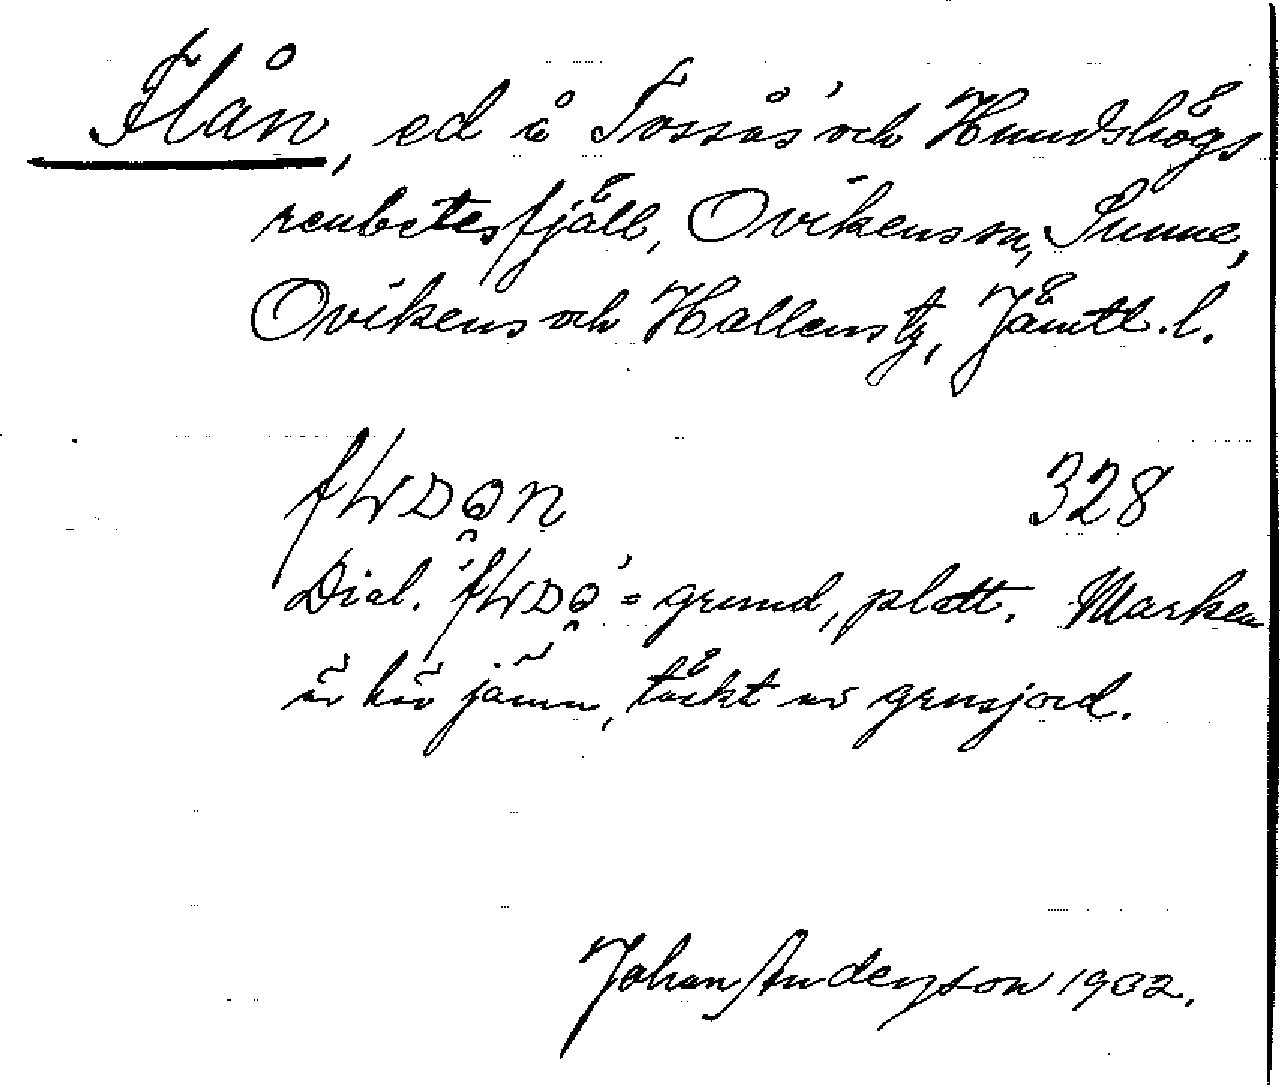 Flån, ed å Tossås och Hundshögs
renbetesfjäll, Ovikens sn, Sunne,
Ovikens och Hallens tg, Jämtl. l.
328
Dial. = grund, platt. Marken
är här jämn, täckt av grusjord.
Johan Anderzson 1902.